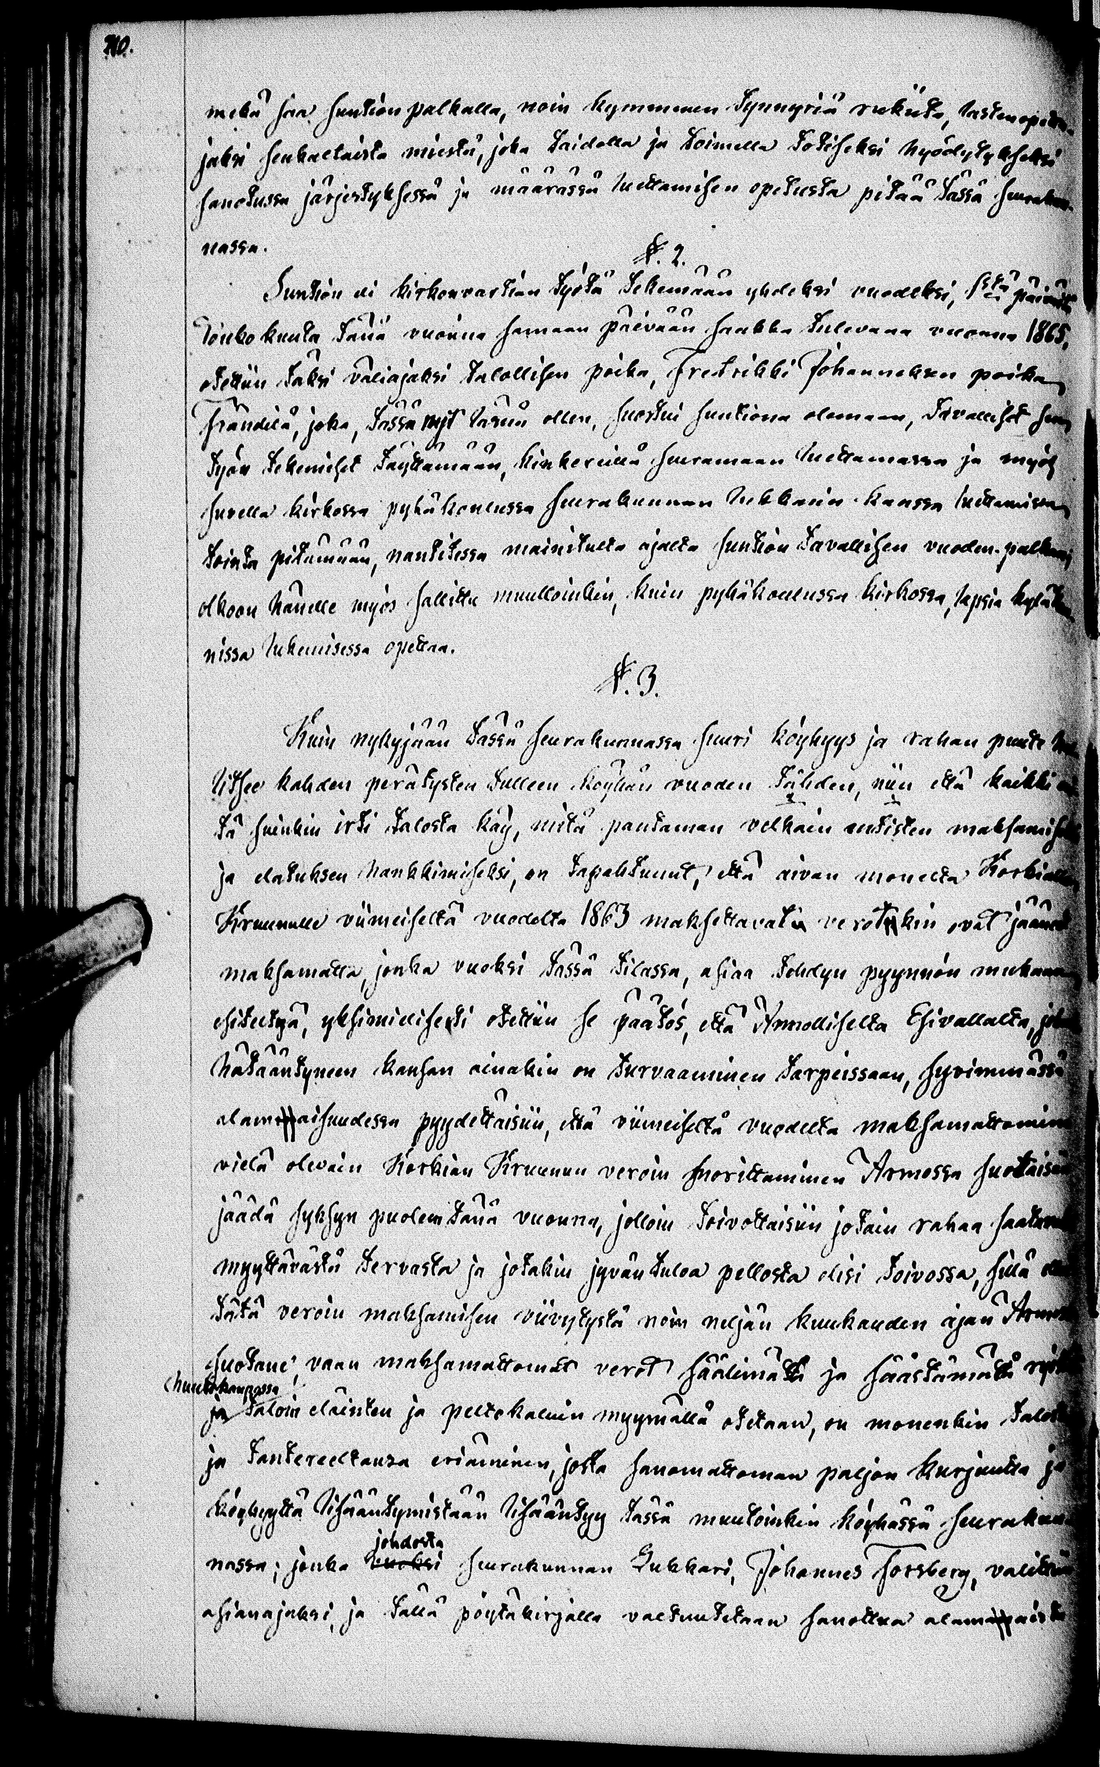 210.
mekä saa suntion palkalla, noin kymmenen Tynnyriä rukiita, lasten opetta-
jaksi senkaltaista miestä, joka taidolla ja toimella Todiseksi hyödytykseksi
sanotussa järjestyksessä ja määrässä luettamisen opetusta pitää tässä seurakun-
nassa.
§. 2.
Suntion eli kirkonvartian työtä tekemään yhdeksi vuodeksi, 1stä päivästä
Toukokuuta tänä vuonna samaan päivään saakka tulevana vuonna 1865,
otettiin täksi väliajaksi talollisen poika, Fredrikki Johanneksen poika
Frändilä, joka, tässä nyt läsnä ollen, suostui suntiona olemaan, tavalliset sen
työn tekemiset täyttämään, kinkerillä seuramaan luettamassa ja myös
suvella kirkossa pyhäkoulussa seurakunnan lukkarin kanssa luettamisen
tointa pitämään, nautitessa mainitulta ajalta suntion tavallisen vuoden-palkan;
olkoon hänelle myös sallittu muulloinkin, kuin pyhäkoulussa kirkossa, lapsia kyläkun-
nissa lukemisessa opettaa.
§. 3.
Kuin nykyjään tässä seurakunnassa suuri köyhyys ja rahan puute
litsee kahden perätysten tulleen köyhän vuoden tähden, niin että kaikki
tä suinkin irti talosta käy, mitä pantaman velkain entisten maksamiseksi
ja elatuksen hankkimiseksi, on tapahtunut, että aivan monelta Korkialle
Kruunulle viimeiseltä vuodelta 1863 maksettavat verotkin ovat jääneet
maksamatta, jonka vuoksi tässä tilassa, asiaa tehdyn pyynnön mukaan
esitettyä, yksimielisesti otettiin se päätös, että Armolliselta Esivallalta, joka
hätääntyneen kansan ainakin on turvaaminen tarpeissaan, syvimmässä
alamaisuudessa pyydettäisiin, että viimeiseltä vuodelta maksamattomien
vielä olevain Korkian Kruunun veroin suorittaminen Armossa suotaisiin
jäädä syksyn puolem tänä vuonna, jolloin toivottaisiin jotain rahaa saatavan
myyttävästä tervasta ja jotakin jyvän tuloa pellosta olisi toivossa, sillä ellei
tätä veroin maksamisen viivytystä noin neljän kuukauden ajan Armossa
suotane, vaan maksamattomat verot säälimättä ja säästämättä
huutokaupassa
ja taloin eläinten ja peltokaluin myymällä otetaan, on monenkin talosta
ja tantereeltansa eriäminen, josta sanomattoman paljon kurjuutta ja
köyhyyttä lisääntymistään lisääntyy tässä muutoinkin köyhässä seurakun-
johdosta
nassa; jonka vuoksi seurakunnan Lukkari, Johannes Forsberg, valittiin
asianajajaksi, ja tällä pöytäkirjalla valtuutetaan sanottua alamaista